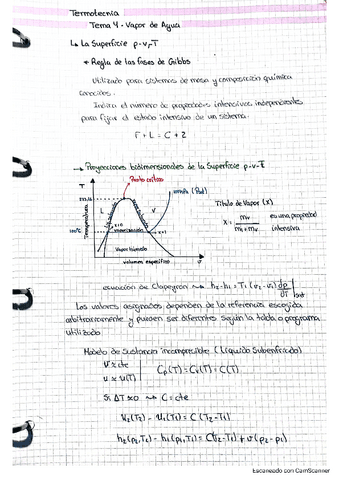 Termotecnia
Tema 4 - Vapor de Agua
↳ La Superficie p-v-T
* Regla de las fases de Gibbs
Utilizado para sistemas de masa y composición química
conocidos.
Indica el número de propiedades intensivas independientes
para fijar el estado intensivo de un sistema.
F + L = C + 2
→ Proyecciones bidimensionales de la Superficie p-v-T
Punto crítico
T
Temperatura
L
V
x=0
x=1
100°C
Vapor húmedo
volumen específico
Título de Vapor (x)
x = mv / ml + mv
es una propiedad
intensiva
ecuación de Clapeyron → h2 - h1 = T · (v2 - v1) dp/dT |sat
Los valores asignados dependen de la referencia escogida
arbitrariamente y pueden ser diferentes según la tabla o programa
utilizado
Modelo de Sustancia incompresible (Líquido Subenfriado)
v ≈ cte
u ≈ u(T)
Cp(T) = Cv(T) = C(T)
Si ΔT ≈ 0 → C = cte
u2(T2) - u1(T1) = C(T2 - T1)
h2(p2,T2) - h1(p1,T1) = C(T2 - T1) + v(p2 - p1)
Escaneado con CamScanner